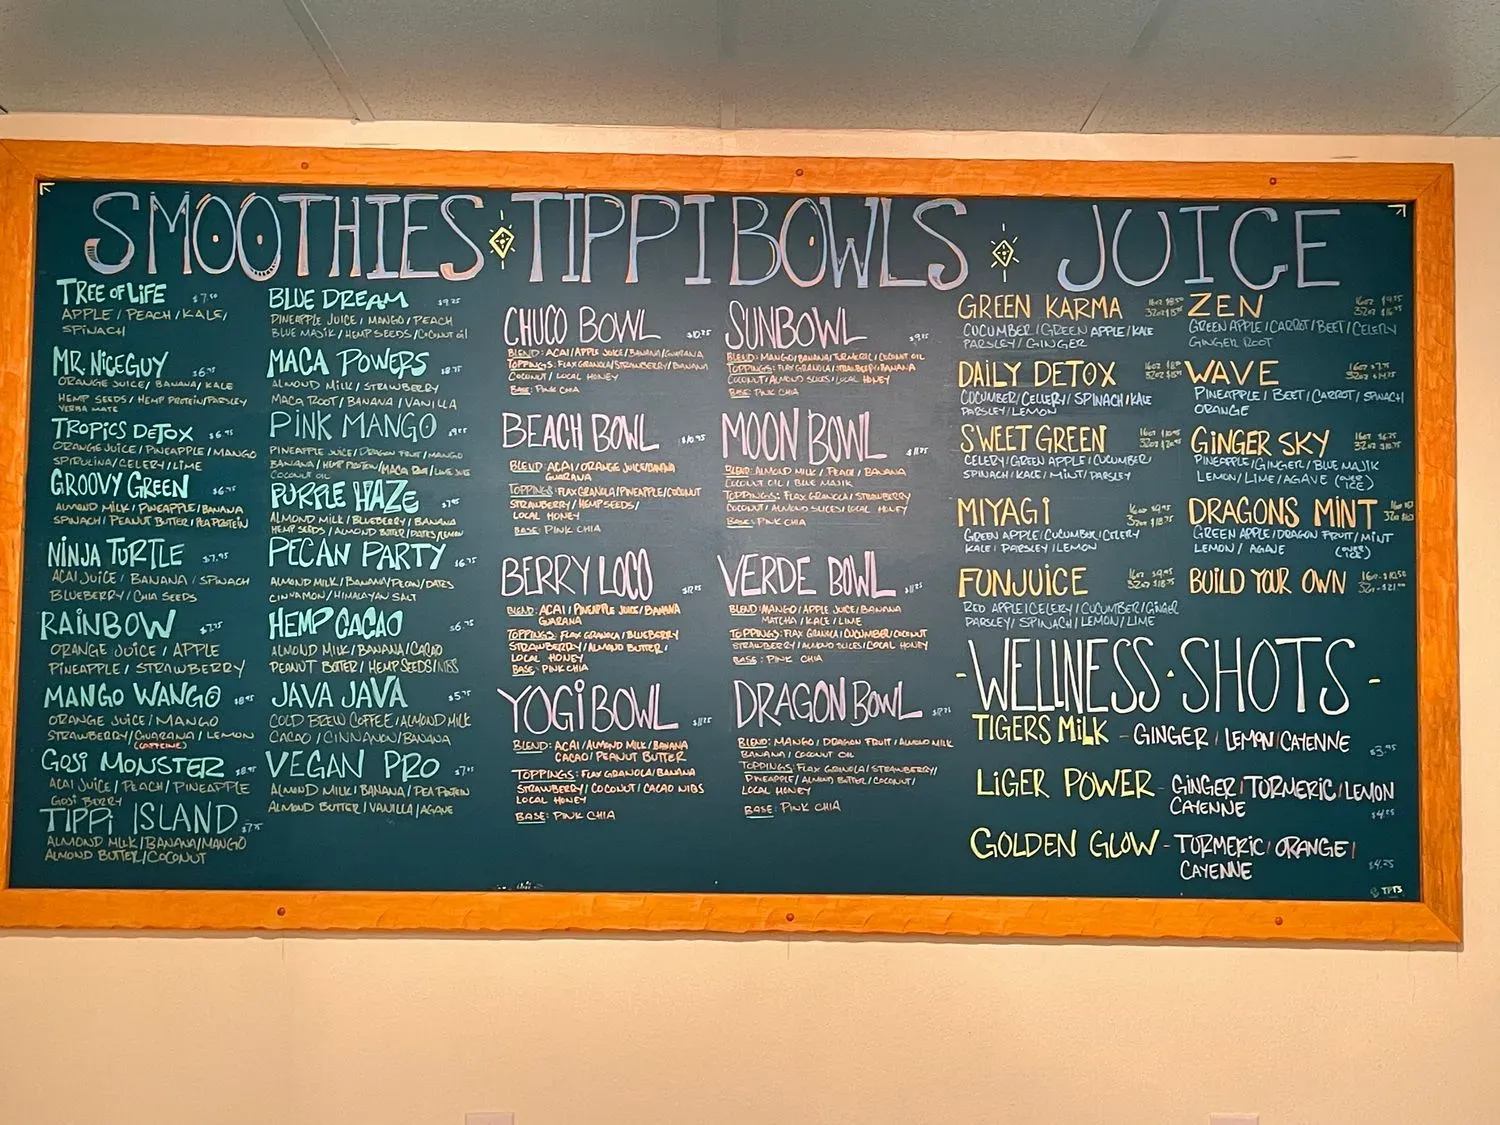 SMOOTHIES TIPPI BOWLS JUICE
TREE OF LIFE
APPLE / PEACH / KALE /
SPINACH
MR. NICEGUY
ORANGE JUICE / BANANA / KALE
HEMP SEEDS / HEMP PROTEIN / PARSLEY
YERBA MATE
TROPICS DETOX
ORANGE JUICE / PINEAPPLE / MANGO
SPIRULINA / CELERY / LIME
GROOVY GREEN
ALMOND MILK / PINEAPPLE / BANANA
SPINACH / PEANUT BUTTER / PEA PROTEIN
NINJA TURTLE $7.95
ACAI JUICE / BANANA / SPINACH
BLUEBERRY / CHIA SEEDS
RAINBOW
ORANGE JUICE / APPLE
PINEAPPLE / STRAWBERRY
MANGO WANGO $8.95
ORANGE JUICE / MANGO
STRAWBERRY / GUARANA / LEMON
(CAFFEINE)
GOJI MONSTER $8.95
ACAI JUICE / PEACH / PINEAPPLE
GOJI BERRY
TIPPI ISLAND
ALMOND MILK / BANANA / MANGO
ALMOND BUTTER / COCONUT
BLUE DREAM $9.25
PINEAPPLE JUICE / MANGO / PEACH
BLUE MAJIK / HEMP SEEDS / COCONUT OIL
MACA POWERS $8.75
ALMOND MILK / STRAWBERRY
MACA ROOT / BANANA / VANILLA
PINK MANGO
PINEAPPLE JUICE / DRAGON FRUIT / MANGO
BANANA / HEMP PROTEIN / MACA ROOT / LIME JUICE
COCONUT OIL
PURPLE HAZE
ALMOND MILK / BLUEBERRY / BANANA
HEMP SEEDS / ALMOND BUTTER / DATES / LEMON
PECAN PARTY $6.75
ALMOND MILK / BANANA / PECAN / DATES
CINNAMON / HIMALAYAN SALT
HEMP CACAO $6.75
ALMOND MILK / BANANA / CACAO
PEANUT BUTTER / HEMP SEEDS / NIBS
JAVA JAVA $5.75
COLD BREW COFFEE / ALMOND MILK
CACAO / CINNAMON / BANANA
VEGAN PRO
ALMOND MILK / BANANA / PEA PROTEIN
ALMOND BUTTER / VANILLA / AGAVE
CHUCO BOWL $10.25
BLEND: ACAI / APPLE JUICE / BANANA / GUARANA
TOPPINGS: FLAX GRANOLA / STRAWBERRY / BANANA
COCONUT / LOCAL HONEY
BASE: PINK CHIA
BEACH BOWL $10.95
BLEND: ACAI / ORANGE JUICE / BANANA
GUARANA
TOPPINGS: FLAX GRANOLA / PINEAPPLE / COCONUT
STRAWBERRY / HEMP SEEDS /
LOCAL HONEY
BASE: PINK CHIA
BERRY LOCO
BLEND: ACAI / PINEAPPLE JUICE / BANANA
GUARANA
TOPPINGS: FLAX GRANOLA / BLUEBERRY
STRAWBERRY / ALMOND BUTTER /
LOCAL HONEY
BASE: PINK CHIA
YOGI BOWL $11.25
BLEND: ACAI / ALMOND MILK / BANANA
CACAO / PEANUT BUTTER
TOPPINGS: FLAX GRANOLA / BANANA
STRAWBERRY / COCONUT / CACAO NIBS
LOCAL HONEY
BASE: PINK CHIA
SUNBOWL
BLEND: MANGO / BANANA / TURMERIC / COCONUT OIL
TOPPINGS: FLAX GRANOLA / STRAWBERRY / BANANA
COCONUT / ALMOND SLICES / LOCAL HONEY
BASE: PINK CHIA
MOON BOWL
BLEND: ALMOND MILK / PEACH / BANANA
COCONUT OIL / BLUE MAJIK
TOPPINGS: FLAX GRANOLA / STRAWBERRY
COCONUT / ALMOND SLICES / LOCAL HONEY
BASE: PINK CHIA
VERDE BOWL
BLEND: MANGO / APPLE JUICE / BANANA
MATCHA / KALE / LIME
TOPPINGS: FLAX GRANOLA / CUCUMBER / COCONUT
STRAWBERRY / ALMOND SLICES / LOCAL HONEY
BASE: PINK CHIA
DRAGON BOWL
BLEND: MANGO / DRAGON FRUIT / ALMOND MILK
BANANA / COCONUT OIL
TOPPINGS: FLAX GRANOLA / STRAWBERRY /
PINEAPPLE / ALMOND BUTTER / COCONUT /
LOCAL HONEY
BASE: PINK CHIA
GREEN KARMA
CUCUMBER / GREEN APPLE / KALE
PARSLEY / GINGER
DAILY DETOX
CUCUMBER / CELLERY / SPINACH / KALE
PARSLEY / LEMON
SWEET GREEN
CELERY / GREEN APPLE / CUCUMBER
SPINACH / KALE / MINT / PARSLEY
MIYAGI
GREEN APPLE / CUCUMBER / CELERY
KALE / PARSLEY / LEMON
FUNJUICE 16oz $9.95
32oz $18.75
RED APPLE / CELERY / CUCUMBER / GINGER
PARSLEY / SPINACH / LEMON / LIME
ZEN
GREEN APPLE / CARROT / BEET / CELERY
GINGER ROOT
WAVE 16oz $7.75
32oz $14.75
PINEAPPLE / BEET / CARROT / SPINACH
ORANGE
GINGER SKY
PINEAPPLE / GINGER / BLUE MAJIK
LEMON / LIME / AGAVE (OVER ICE)
DRAGONS MINT
GREEN APPLE / DRAGON FRUIT / MINT
LEMON / AGAVE (OVER ICE)
BUILD YOUR OWN 16oz - $10.50
32oz - $21.00
- WELLNESS · SHOTS -
TIGERS MILK - GINGER / LEMON / CAYENNE
$3.95
LIGER POWER - GINGER / TURMERIC / LEMON
CAYENNE
$4.25
GOLDEN GLOW - TURMERIC / ORANGE /
CAYENNE
$4.25